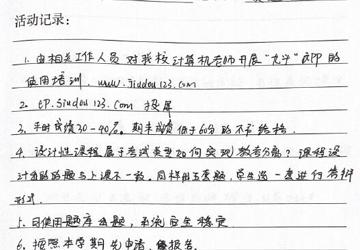 活动记录：
1. 由相关工作人员对我校计算机老师开展"九斗"APP的
使用培训. www.jiudou123.com
2. tp.jiudou123.com 投屏
3. 平时成绩30-40%. 期末成绩低于60分的不予给格.
4. 设计性课程属于考试类型如何实现教考分离？课程设
计出的题与上课不一致. 同样出五套题, 学生选一套进行答辩
形式.
5. 可使用题库出题, 系统安全稳定
6. 按照本学期先申请, 做报告